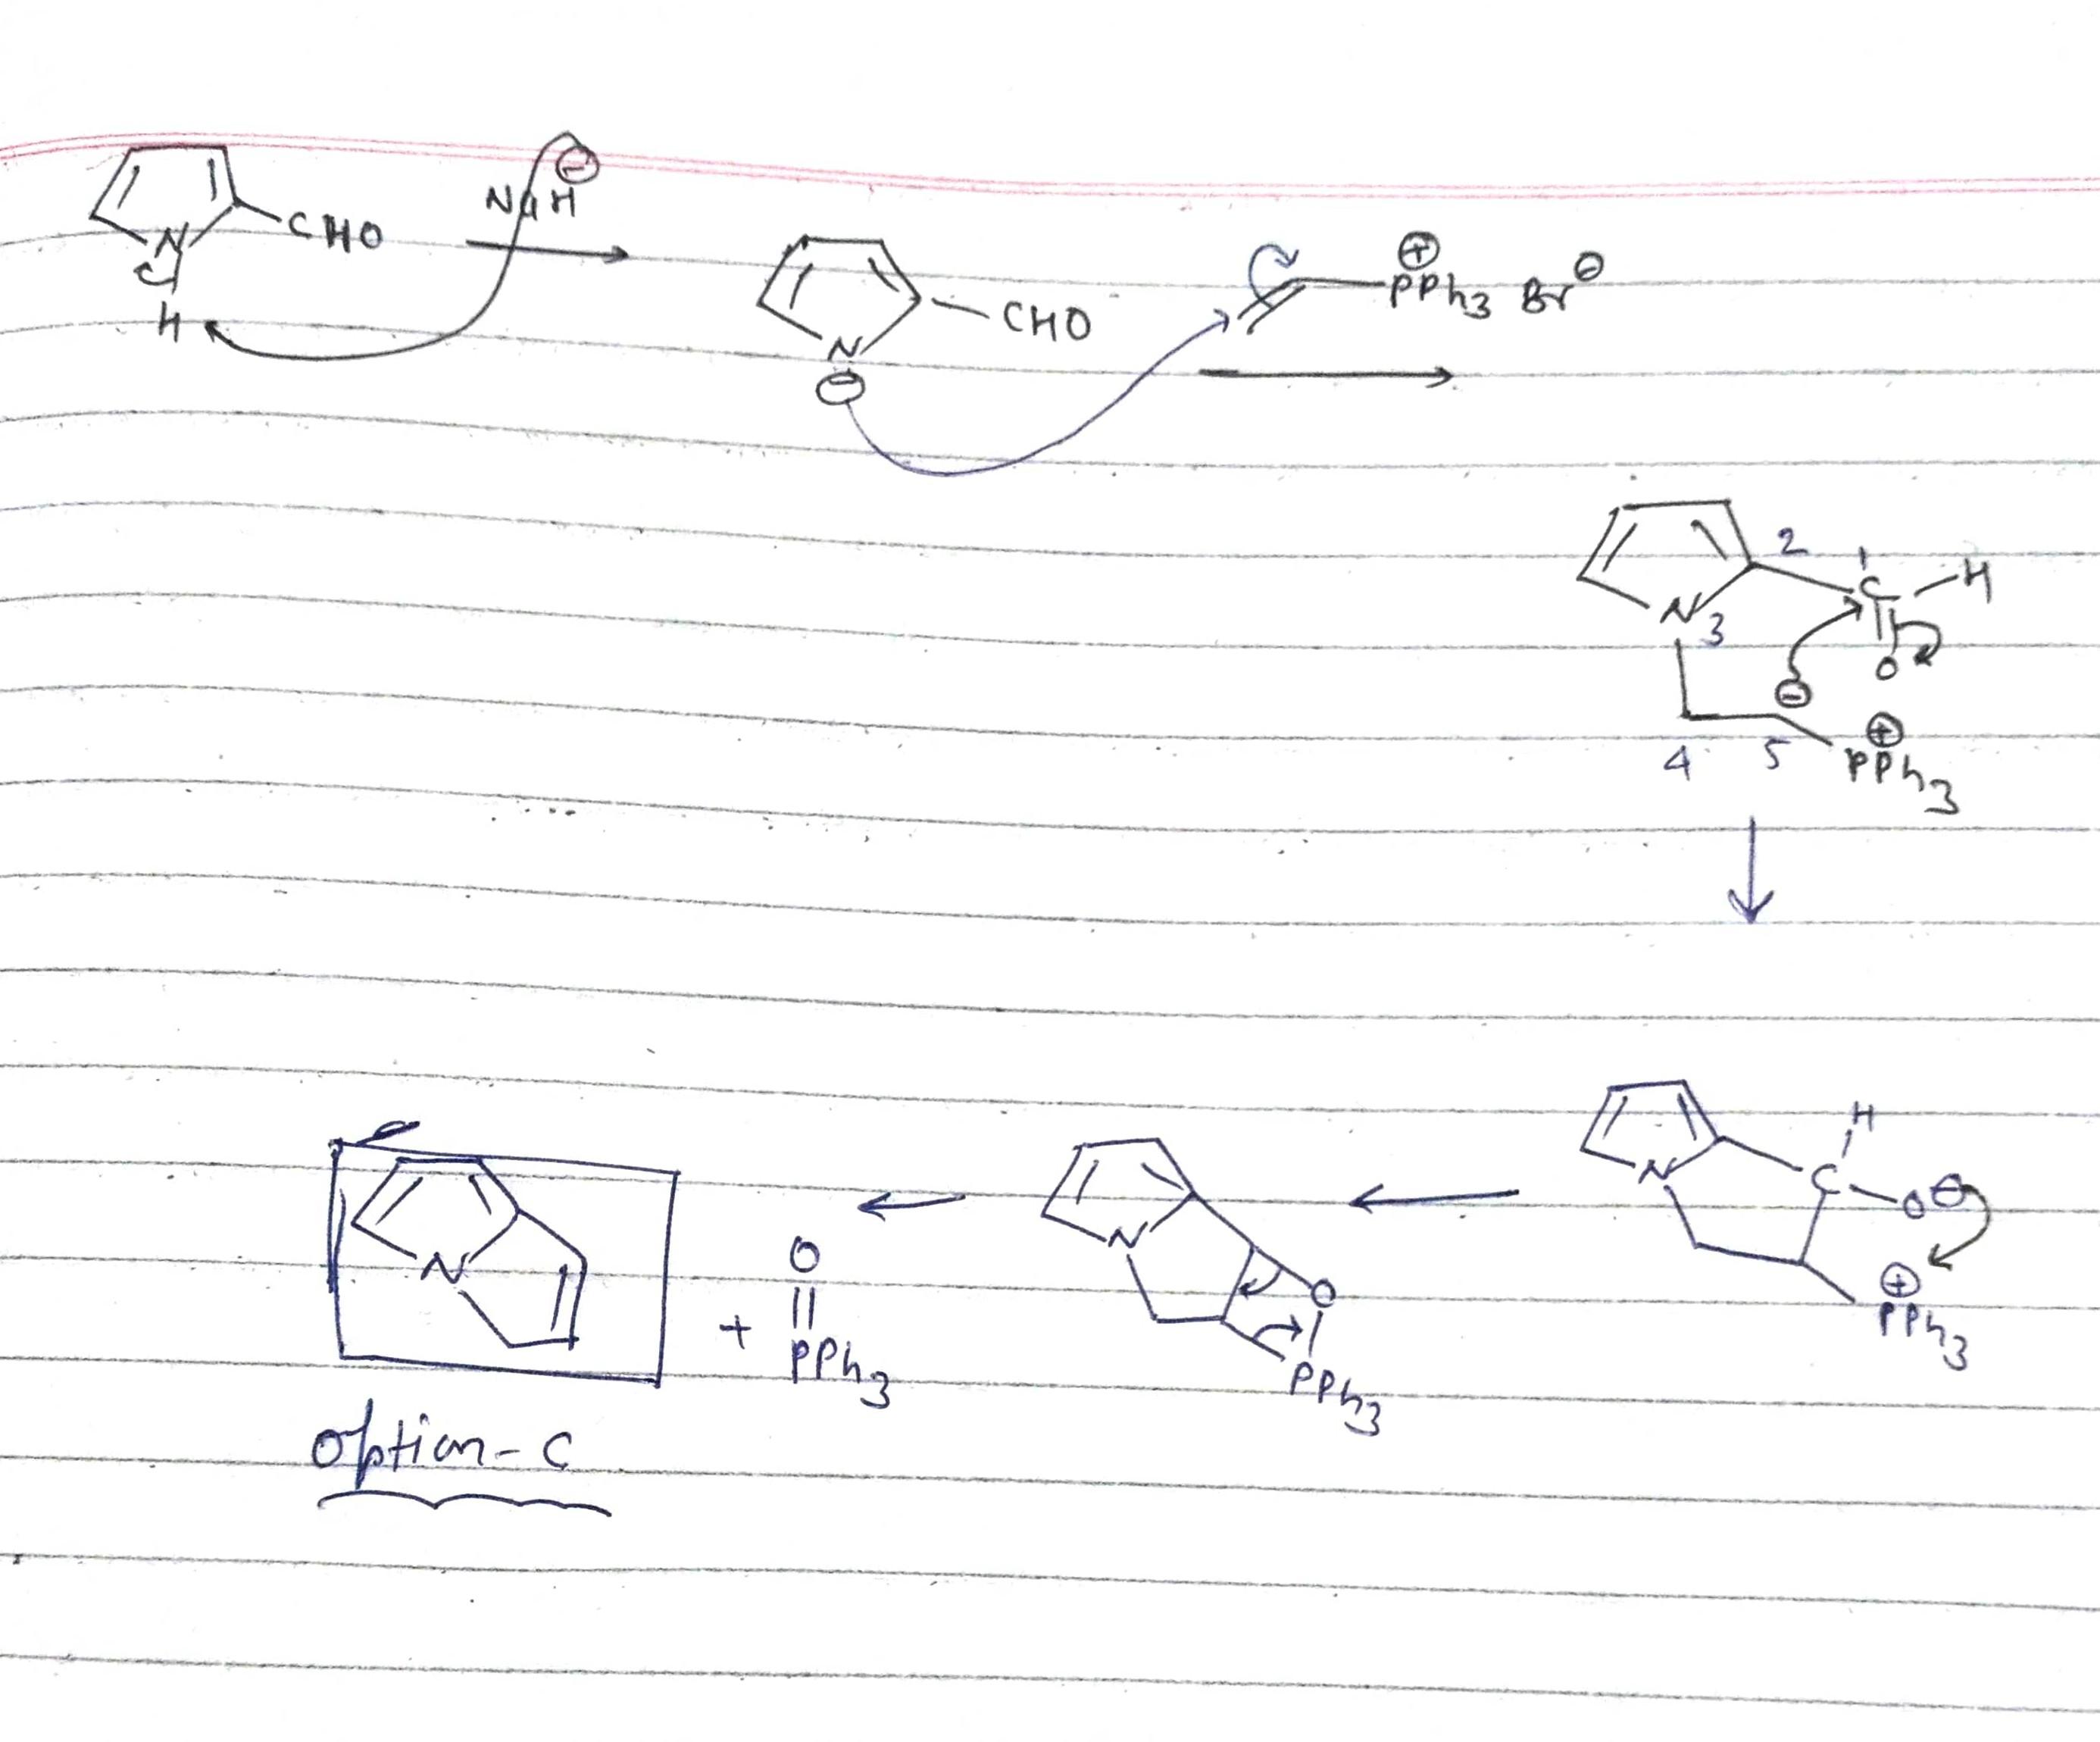 NaH ⊖
N CHO
H
N CHO
⊖
⊕
PPh3 Br⊖
2 1
C H
N 3 O
⊖
4 5 ⊕
PPh3
H
N C O⊖
⊕
PPh3
N O
PPh3
N + O
PPh3
Option-C